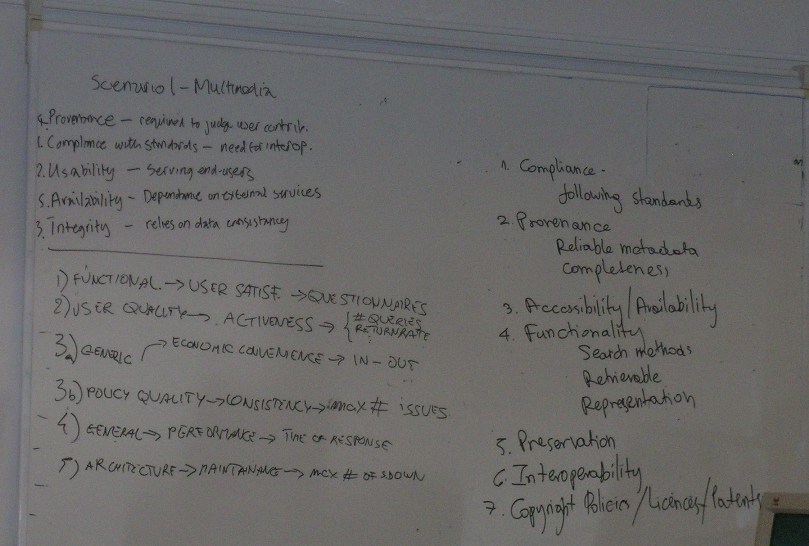 Scenario 1 - Multimedia
4. Provenance - required to judge user contrib.
1. Compliance with standards - need for interop.
2. Usability - serving end-users
5. Availability - Dependance on external services
3. Integrity - relies on data consistancy
1) FUNCTIONAL → USER SATISF. → QUESTIONNAIRES
2) USER QUALITY → ACTIVENESS → { # QUERIES
RETURN RATE
3a) GENERIC → ECONOMIC CONVENIENCE → IN - OUT
3b) POLICY QUALITY → CONSISTENCY → max # ISSUES
4) GENERAL → PERFORMANCE → TIME OF RESPONSE
5) ARCHITECTURE → MAINTAINANCE → MAX # OF SDOWN
1. Compliance.
following standards
2. Provenance
Reliable metadata
Completeness
3. Accessibility/Availability
4. Functionality
Search methods
Retrievable
Representation
5. Preservation
6. Interoperability
7. Copyright Policies/Licences/Patents